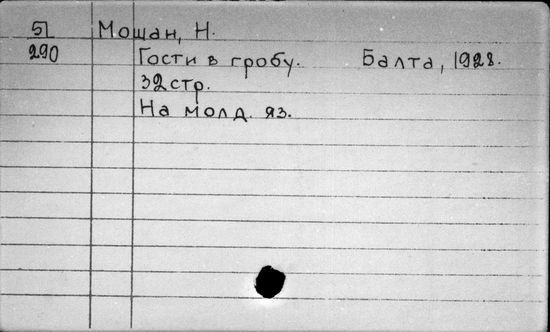 5 Мошан, Н.
290 Гости в гробу. Балта, 1928.
32 стр.
На молд. яз.